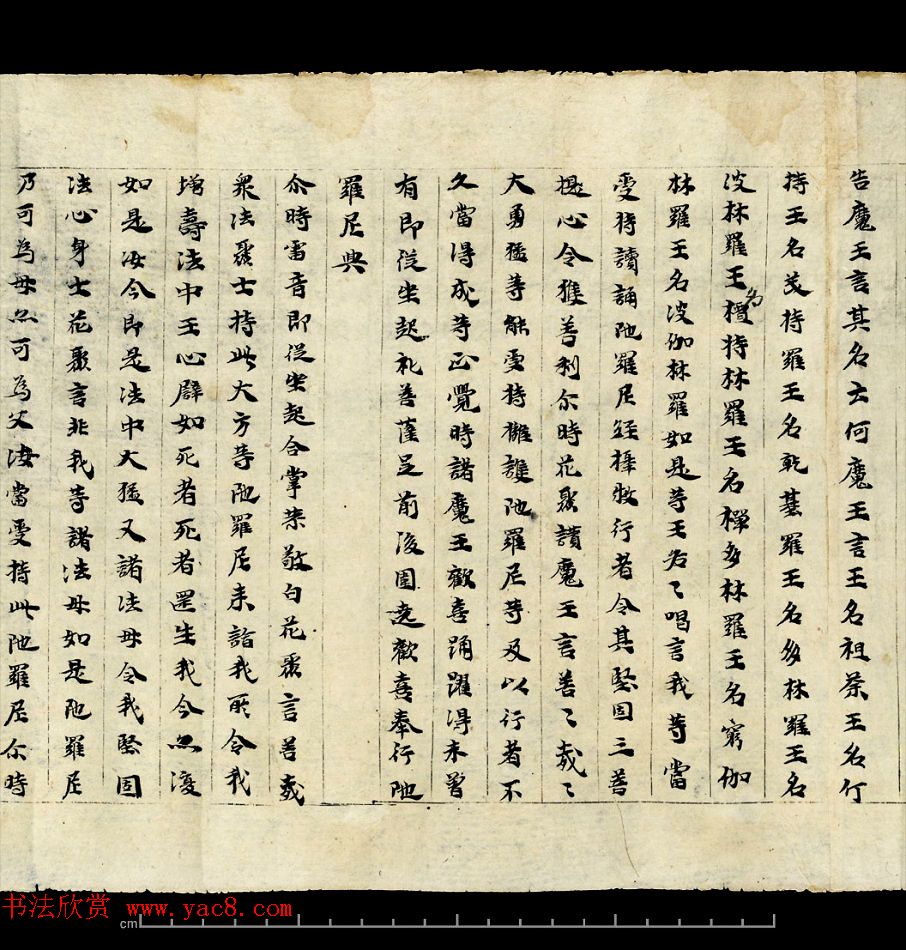 告魔王言其名云何魔王言王名祖茶王名仃
持王名茂持羅王名乾基羅王名多林羅王名
波林羅王名檀持林羅王名禪多林羅王名窮伽
林羅王名波伽林羅如是等王名〻唱言我等當
受持讀誦陁羅尼經擁牧行者令其堅固三菩
提心令獲善利尒時花聚讃魔王言善〻哉〻
大勇猛等能受持擁護陁羅尼等及以行者不
久當得成等正覺時諸魔王歡喜踊躍得未曾
有即從坐起礼菩薩足前後圍遶歡喜奉行陁
羅尼典
尒時雷音即從坐起合掌恭敬白花聚言善哉
衆法聚士持此大方等陁羅尼来詣我所令我
增壽法中王心辟如死者死者還生我今亦復
如是汝今即是法中大猛又諸法母令我堅固
法心身士花聚言非我等諸法母如是陁羅尼
乃可為母亦可為父汝當受持此陁羅尼尒時
书法欣赏 www.yac8.com
cm